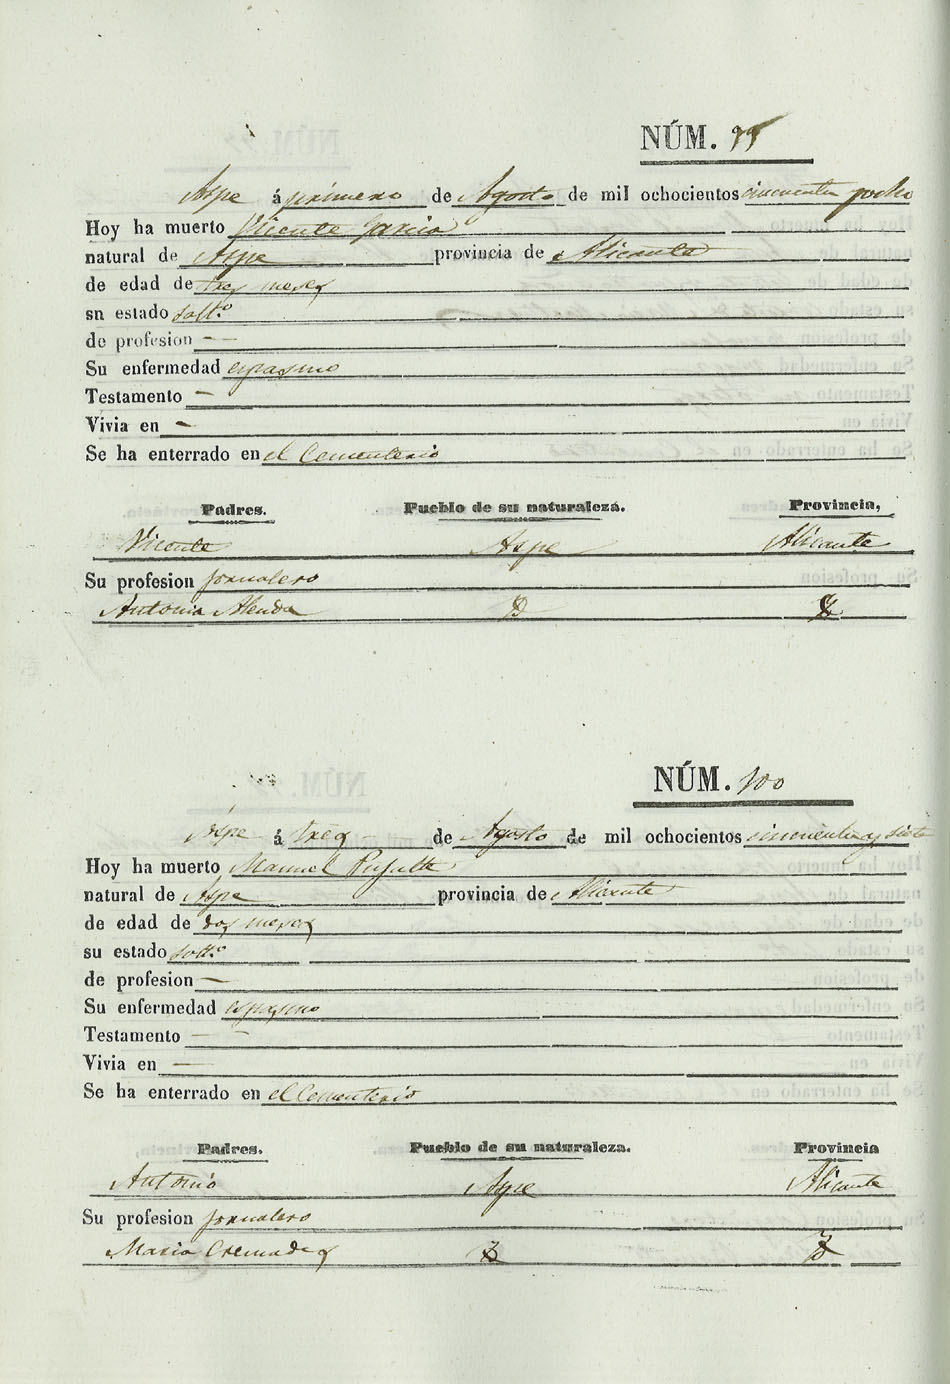 NÚM. 99
Aspe á primero de Agosto de mil ochocientos cincuenta y ocho
Hoy ha muerto Vicente Garcia
natural de Aspe provincia de Alicante
de edad de tres meses
sn estado solt.º
de profesion —
Su enfermedad espasmo
Testamento —
Vivia en —
Se ha enterrado en el Cementerio
Padres. Pueblo de su naturaleza. Provincia,
Vicente Aspe Alicante
Su profesion jornalero
Antonia Alenda
NÚM. 100
Aspe á tres de Agosto de mil ochocientos cincuenta y siete
Hoy ha muerto Manuel
natural de Aspe provincia de Alicante
de edad de dos meses
su estado solt.º
de profesion —
Su enfermedad espasmo
Testamento —
Vivia en —
Se ha enterrado en el Cementerio
Padres. Pueblo de su naturaleza. Provincia
Antonio Aspe Alicante
Su profesion jornalero
Maria Cremades